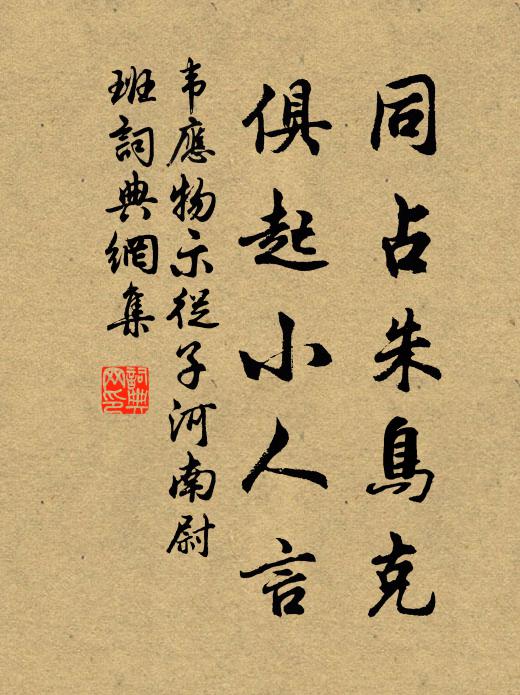 同占朱鳥克
俱起小人言
韦應物示從子河南尉
班詞典網集
詞典网印